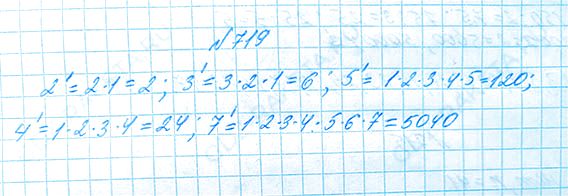 №719
2! = 2·1 = 2; 3! = 3·2·1 = 6; 5! = 1·2·3·4·5 = 120;
4! = 1·2·3·4 = 24; 7! = 1·2·3·4·5·6·7 = 5040